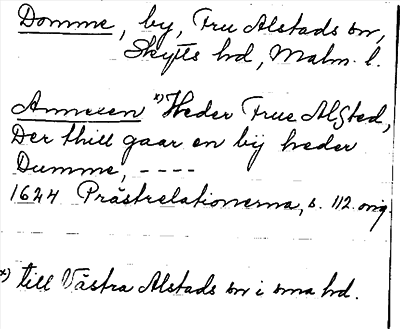 Domme, by, Fru Alstads sn,
Skytts hd, Malm. l.
Annexen x) Heder Frue Alsted,
Der thill gaar en bÿ heder
Dumme, ----
1624 Prästrelationerna, s. 112. orig.
x) till Västra Alstads sn i sma hd.